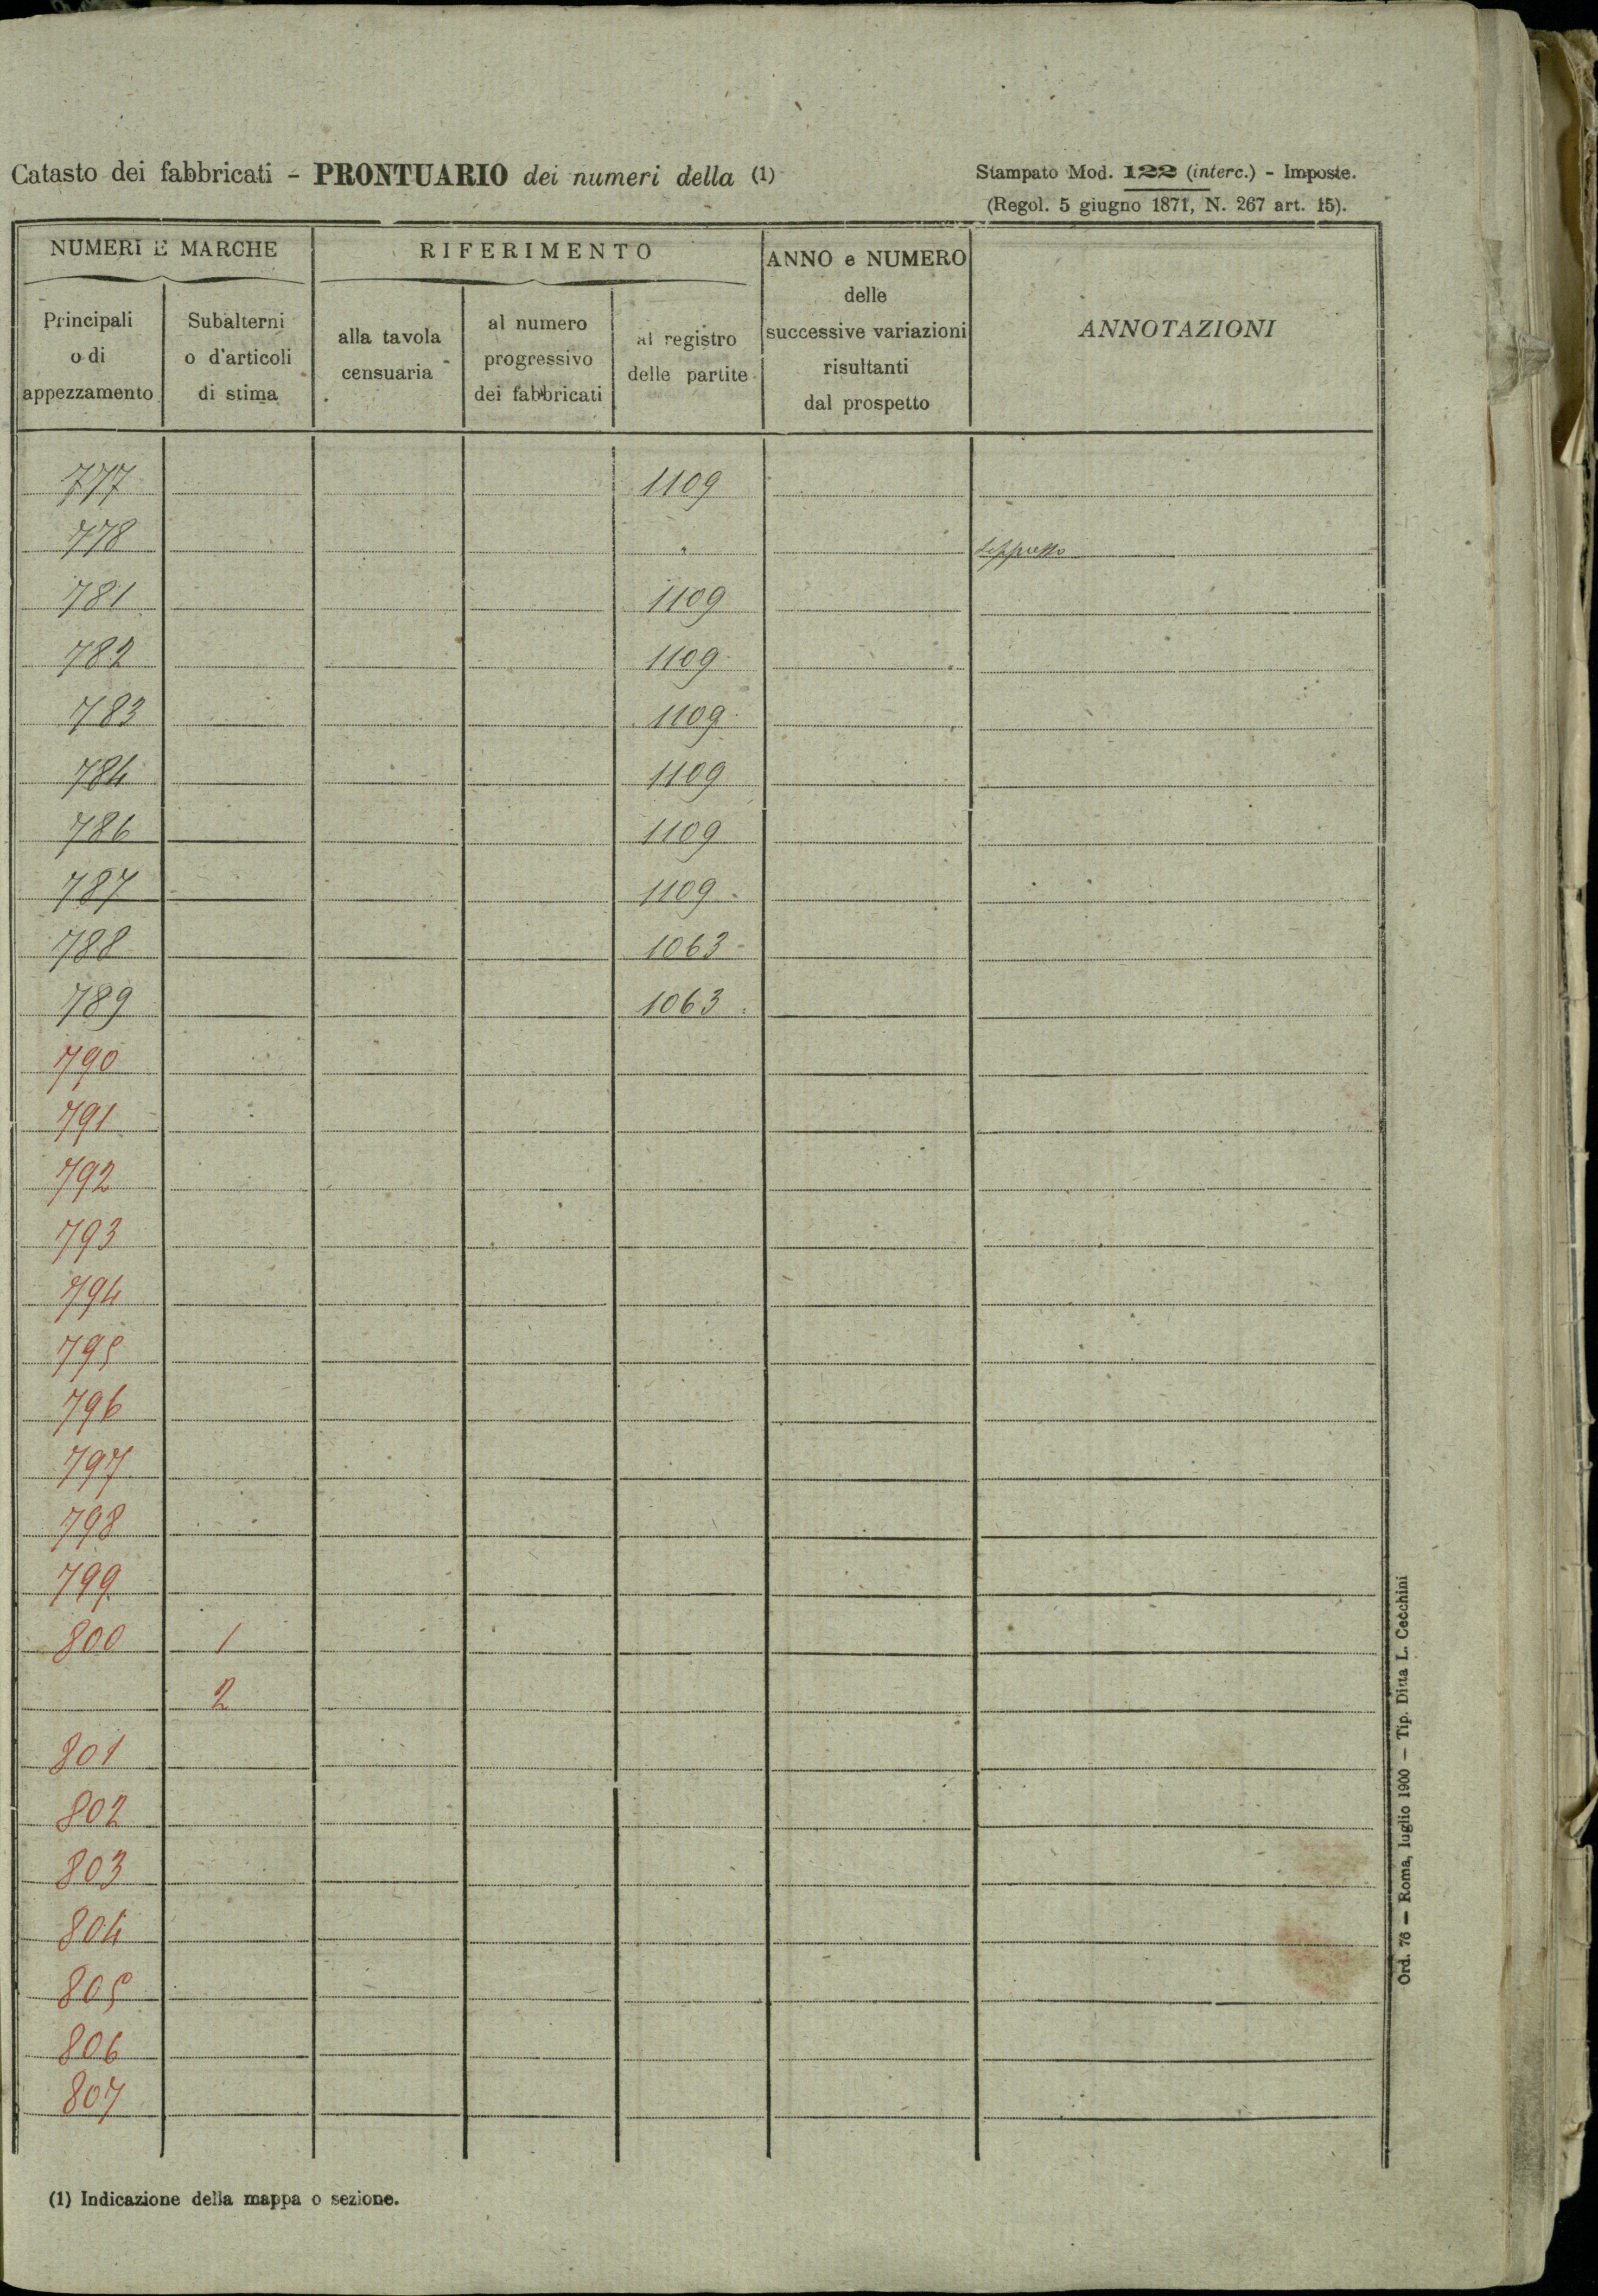 Catasto dei fabbricati - PRONTUARIO dei numeri della (1)
Stampato Mod. 122 (interc.) - Imposte.
(Regol. 5 giugno 1871, N. 267 art. 15).
NUMERI E MARCHE
RIFERIMENTO
ANNO e NUMERO
delle
successive variazioni
risultanti
dal prospetto
ANNOTAZIONI
Principali
o di
appezzamento
Subalterni
o d'articoli
di stima
alla tavola
censuaria
al numero
progressivo
dei fabbricati
al registro
delle partite
777 1109
778 " Soppresso
781 1109
782 1109
783 1109
784 1109
786 1109
787 1109
788 1063
789 1063
790
791
792
793
794
795
796
797
798
799
800 1
2
801
802
803
804
805
806
807
(1) Indicazione della mappa o sezione.
Ord. 76 — Roma, luglio 1900 — Tip. Ditta L. Cecchini